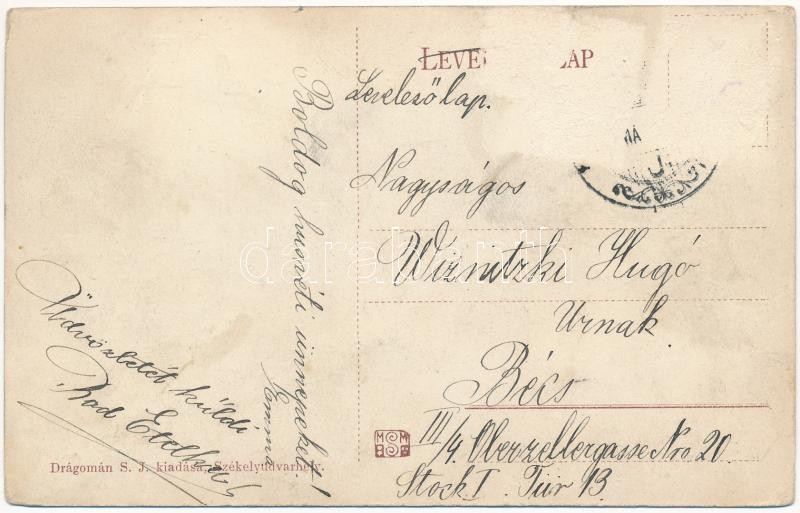 LEVE AP
Levelező lap.
Nagyságos
Wiznitzki Hugó
Urnak
Bécs
III/4. Oberzellergasse Nro 20.
Stock I. Tür 13
Boldog husvéti ünnepeket!
Emma
Üdvözletét küldi
Bod Etelka
Drágomán S. J. kiadása, Székelyudvarhely.
M S M
darabanth.com